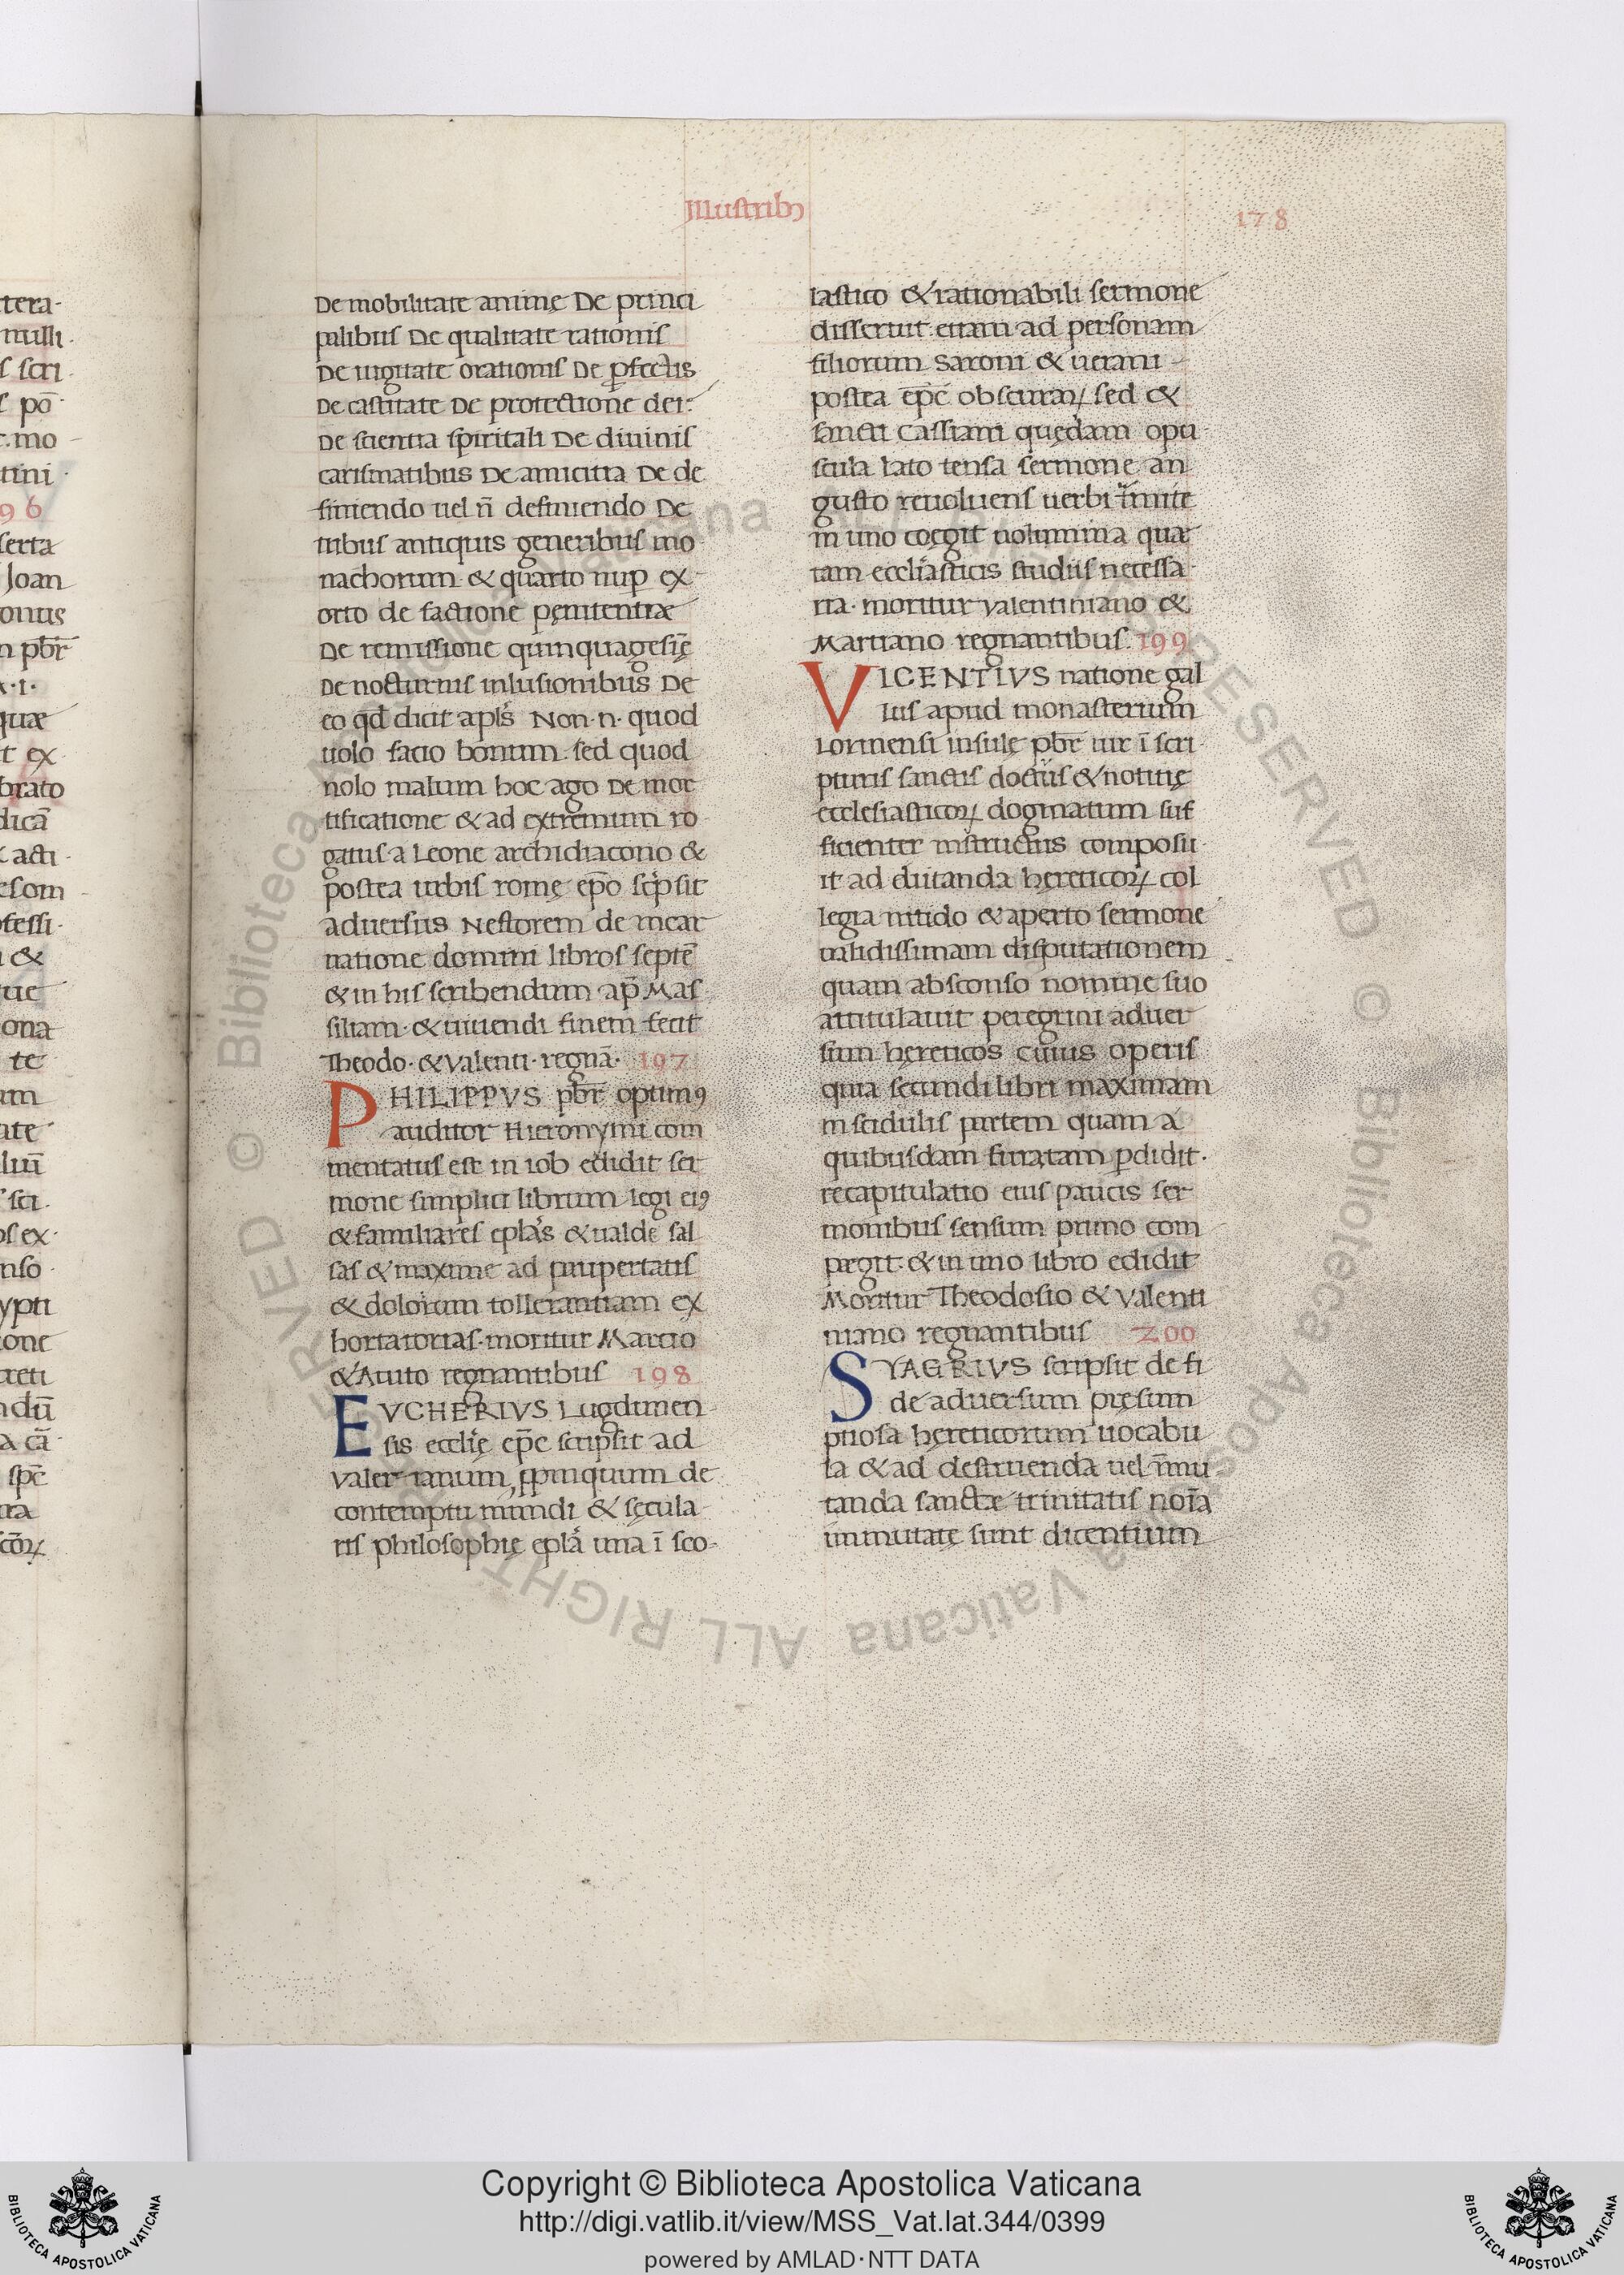 Illustribꝰ
178
De mobilitate animę De princi
palibus De qualitate rationis
De iugitate orationis De ꝑfectis
De castitate De protectione dei.
De scientia spiritali De diuinis
carismatibus De amicitia De de
finiendo uel n̄ definiendo De
tribus antiquis generibus mo
nachorum & quarto nuꝑ ex
orto de factione pęnitentiæ
De remissione quinquagesię̄
De nocturnis inlusionibus De
eo qd̄ dicit apls̄ Non·n·quod
uolo facio bonum sed quod
nolo malum hoc ago De mor
tificatione & ad extremum ro
gatus a Leone archidiacono &
postea urbis romę ep̄o sc̄psit
aduersus Nestorem de incar
natione domini libros septē
& in his scribendum ap̄ Mas
siliam·& uiuendi finem fecit
Theodo·& Valenti·regnā· 197
PHILIPPVS pbr̄ optimꝰ
auditor Hieronymi com
mentatus est in iob edidit ser
mone simplici librum legi eiꝰ
& familiares epl̄as & ualde sal
sas & maxime ad paupertatis
& dolorum tollerantiam ex
hortatorias·moritur Marcio
& Auito regnantibus 198
EVCHERIVS Lugdunen
sis eccl̄ię ep̄c scripsit ad
Valerianum ꝓpinquum de
contemptu mundi & sęcula
ris philosophię epl̄a una ī sco-
lastico & rationabili sermone
disseruit etiam ad personam
filiorum Saroni & uerani
postea ep̄c obscuraꝝ sed &
sancti Cassiani quędam opu
scula lato tensa sermone an
gusto reuoluens uerbi t̄mite
in uno coegit uolumina quæ
tam eccl̄iasticis studiis necessa
ria·moritur Valentiniano &
Martiano regnantibus. 199
VICENTIVS natione gal
lus apud monasterium
Lorinensi insulę pbr̄ uir ī scri
pturis sanctis doctus & notitię
ecclesiasticoꝝ dogmatum suf
ficienter instructus composu
it ad uitanda hęreticoꝝ col
legia nitido & aperto sermone
ualidissimam disputationem
quam absconso nomine suo
attitulauit peregrini aduer
sum hęreticos cuius operis
quia secundi libri maximam
in scidulis partem quam a
quibusdam furatam ꝑdidit·
recapitulatio eius paucis ser
monibus sensum primo com
pegit·& in uno libro edidit
Moritur Theodosio & Valenti
niano regnantibus 200
SYAGRIVS scripsit de fi
de aduersum pręsum
ptiosa hęreticorum uocabu
la & ad destruenda uel īmu
tanda sanctæ trinitatis noīa
immutatę sunt dicentium
tera·
nulli·
s scri·
s pō
·mo
tini·
96
serta
Joan
n pbr̄
quæ
t ex
brato
dicā
acti·
fessi·
&
ona
te
ypti
ione
creti
Copyright © Biblioteca Apostolica Vaticana
http://digi.vatlib.it/view/MSS_Vat.lat.344/0399
powered by AMLAD·NTT DATA
BIBLIOTECA APOSTOLICA VATICANA
BIBLIOTECA APOSTOLICA VATICANA
© Biblioteca Apostolica Vaticana ALL RIGHTS RESERVED © Biblioteca Apostolica Vaticana ALL RIGHTS RESERVED